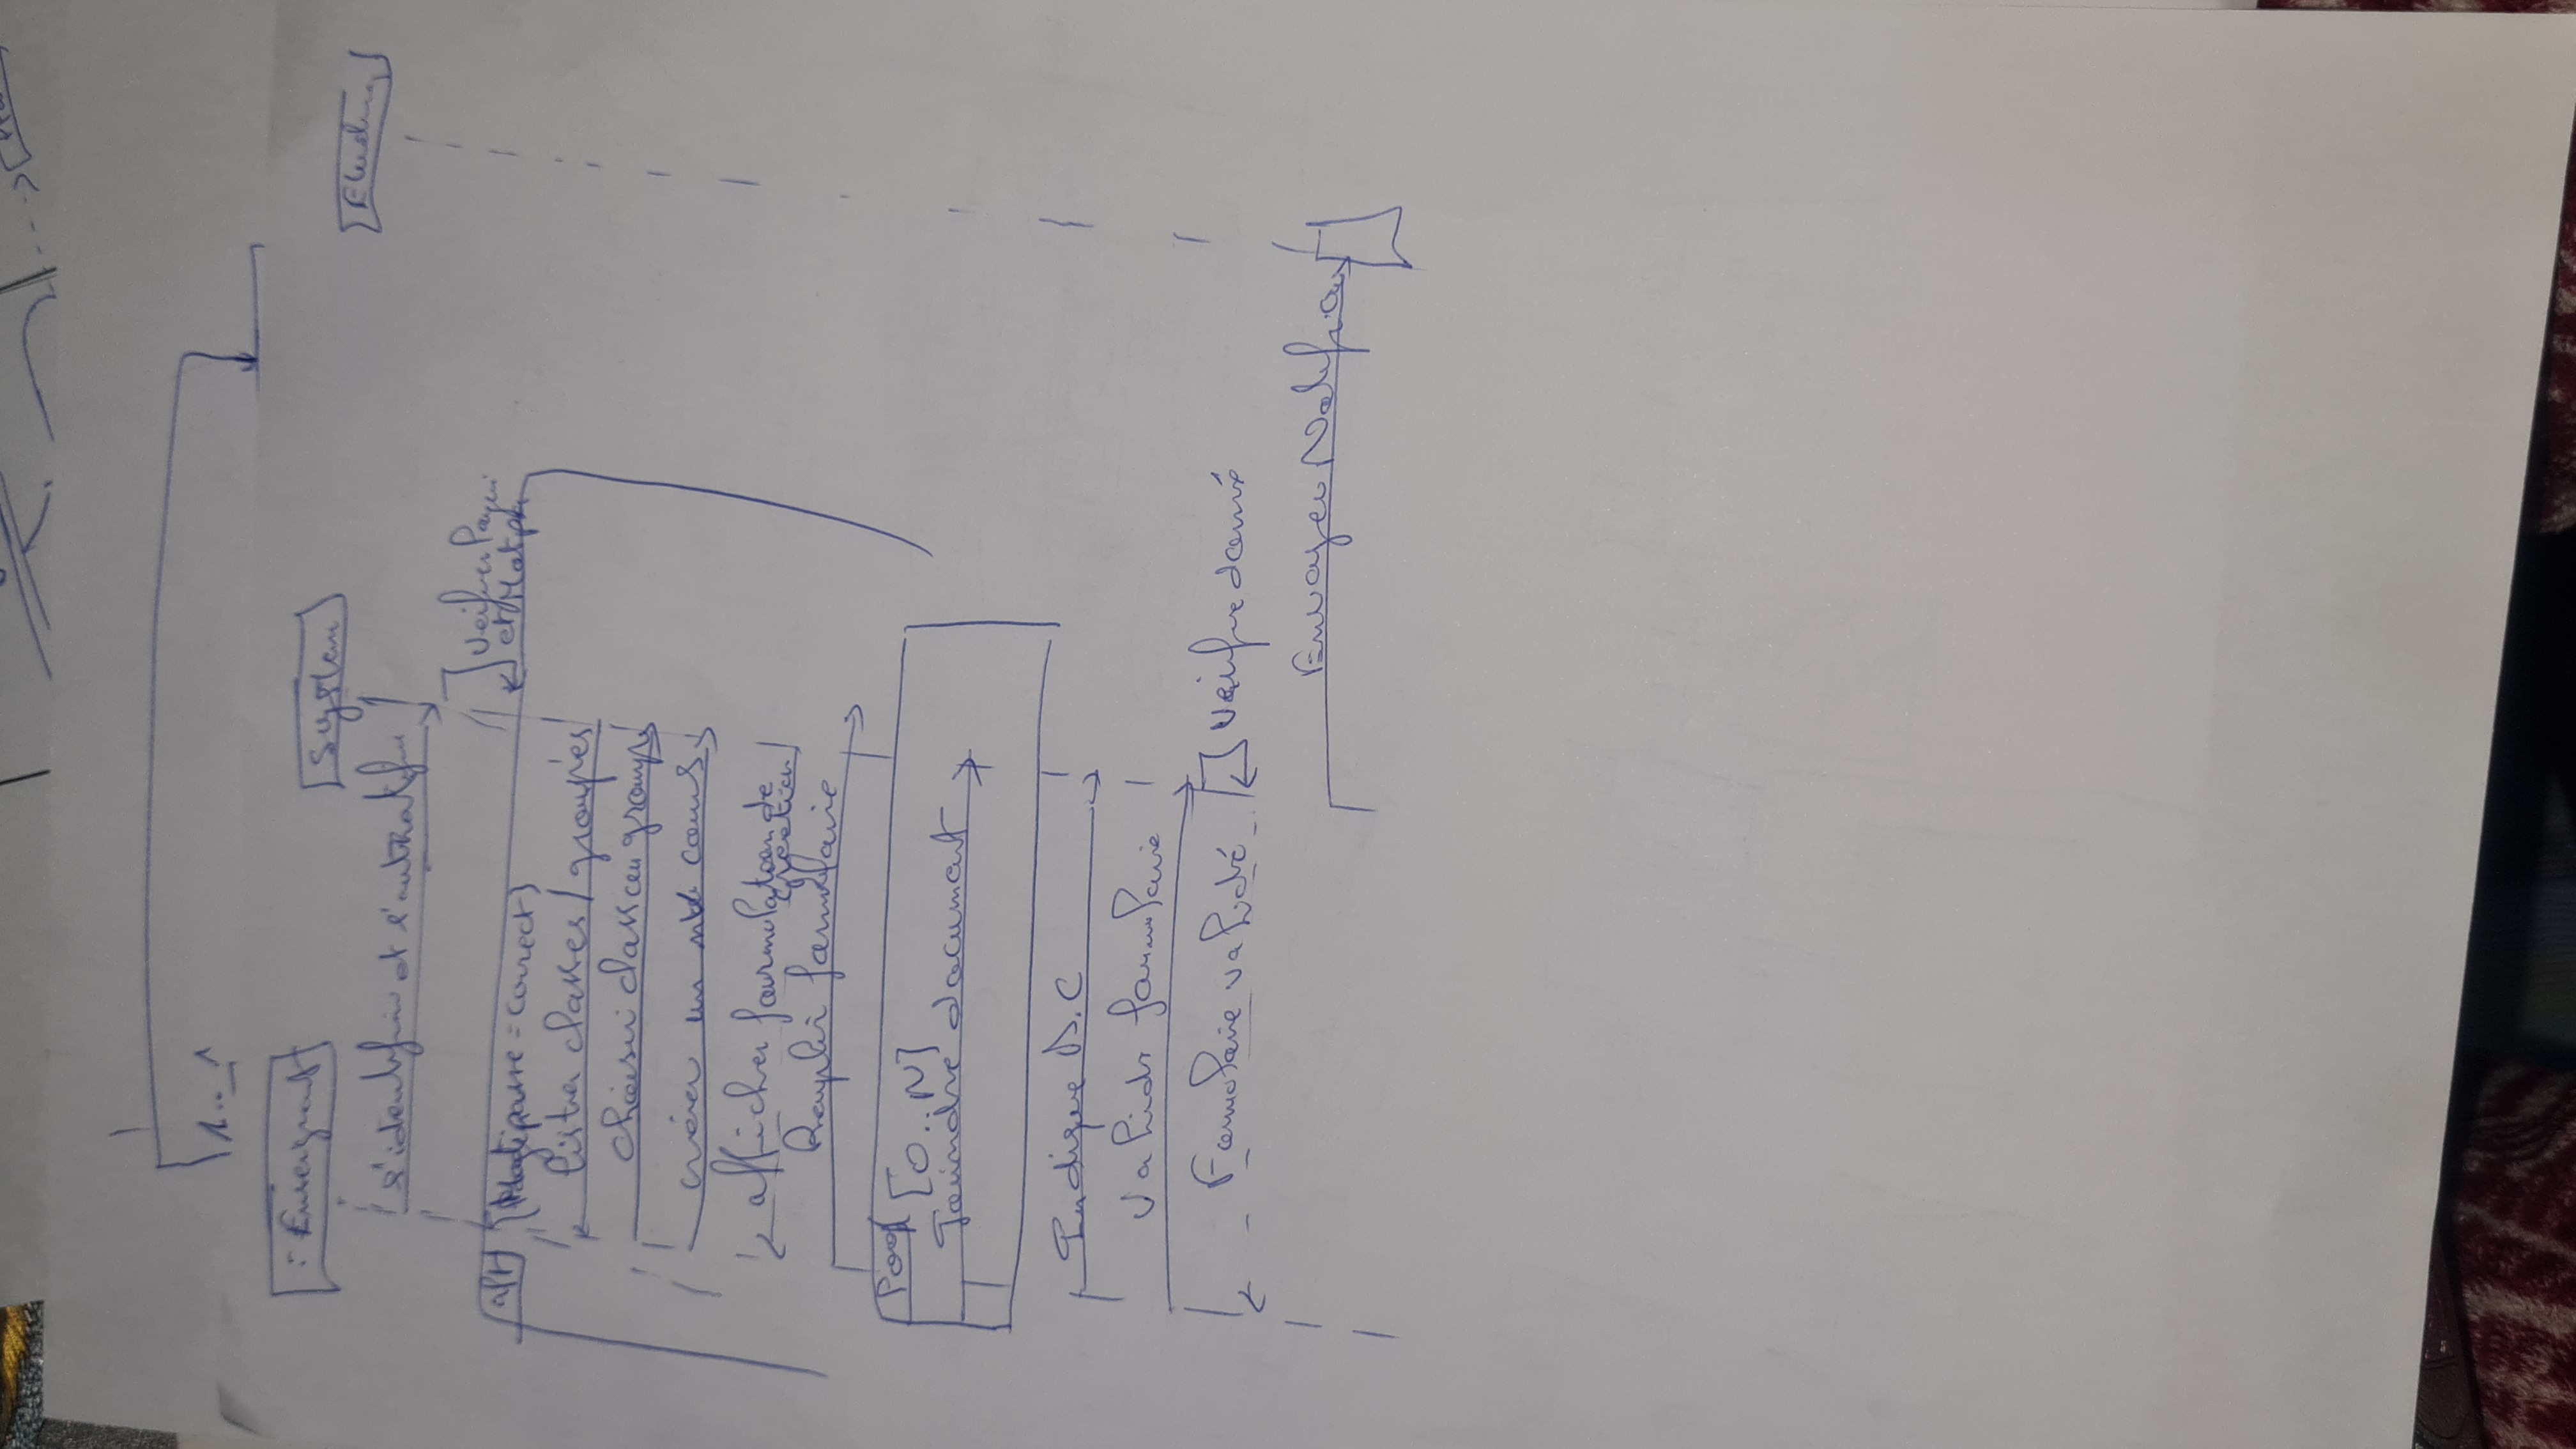 1..1
: Enseignant
System
s'identifier et s'authentifier
Verifier
et Motpa
= correct]
lister classes / groupes
choisir classe ou groupe
créer un cours
afficher formulation de
création
Remplir formulaire
Loop
[0..N]
Joindre document
Indique D.C
Valider formulaire
Formulaire validé
Verifie donné
Envoyer Notification